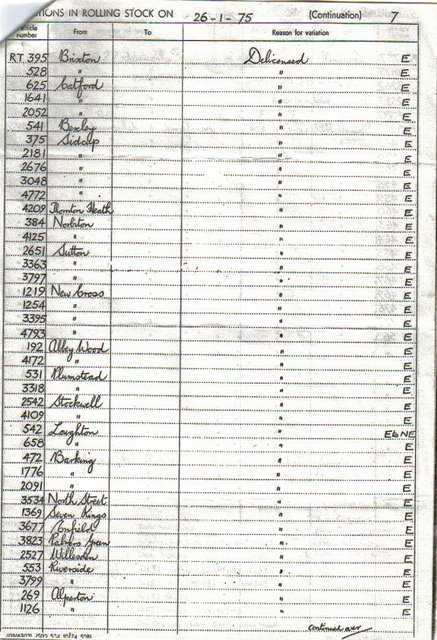 TIONS IN ROLLING STOCK ON 26-1-75 (Continuation) 7
Vehicle number From To Reason for variation
RT 395 Brixton Delicensed E
528 " " E
625 Catford " E
1641 " " E
2052 " " E
541 Bexley " E
375 Sidcup " E
2181 " " E
2676 " " E
3048 " " E
4772 " " E
4209 Thornton Heath " E
384 Norbiton " E
4125 " " E
2651 Sutton " E
3363 " " E
3797 " " E
1219 New Cross " E
1254 " " E
3395 " " E
4793 " " E
192 Abbey Wood " E
4172 " " E
531 Plumstead " E
3318 " " E
2542 Stockwell " E
4109 " " E
542 Loughton " E6NE
658 " " E
472 Barking " E
1776 " " E
2091 " " E
3534 North Street " E
1369 Seven Kings " E
3677 Enfield " E
3823 Palmers Green " E
2527 Willesden " E
553 Riverside " E
3799 " " E
269 Alperton " E
1126 " " E
continued over